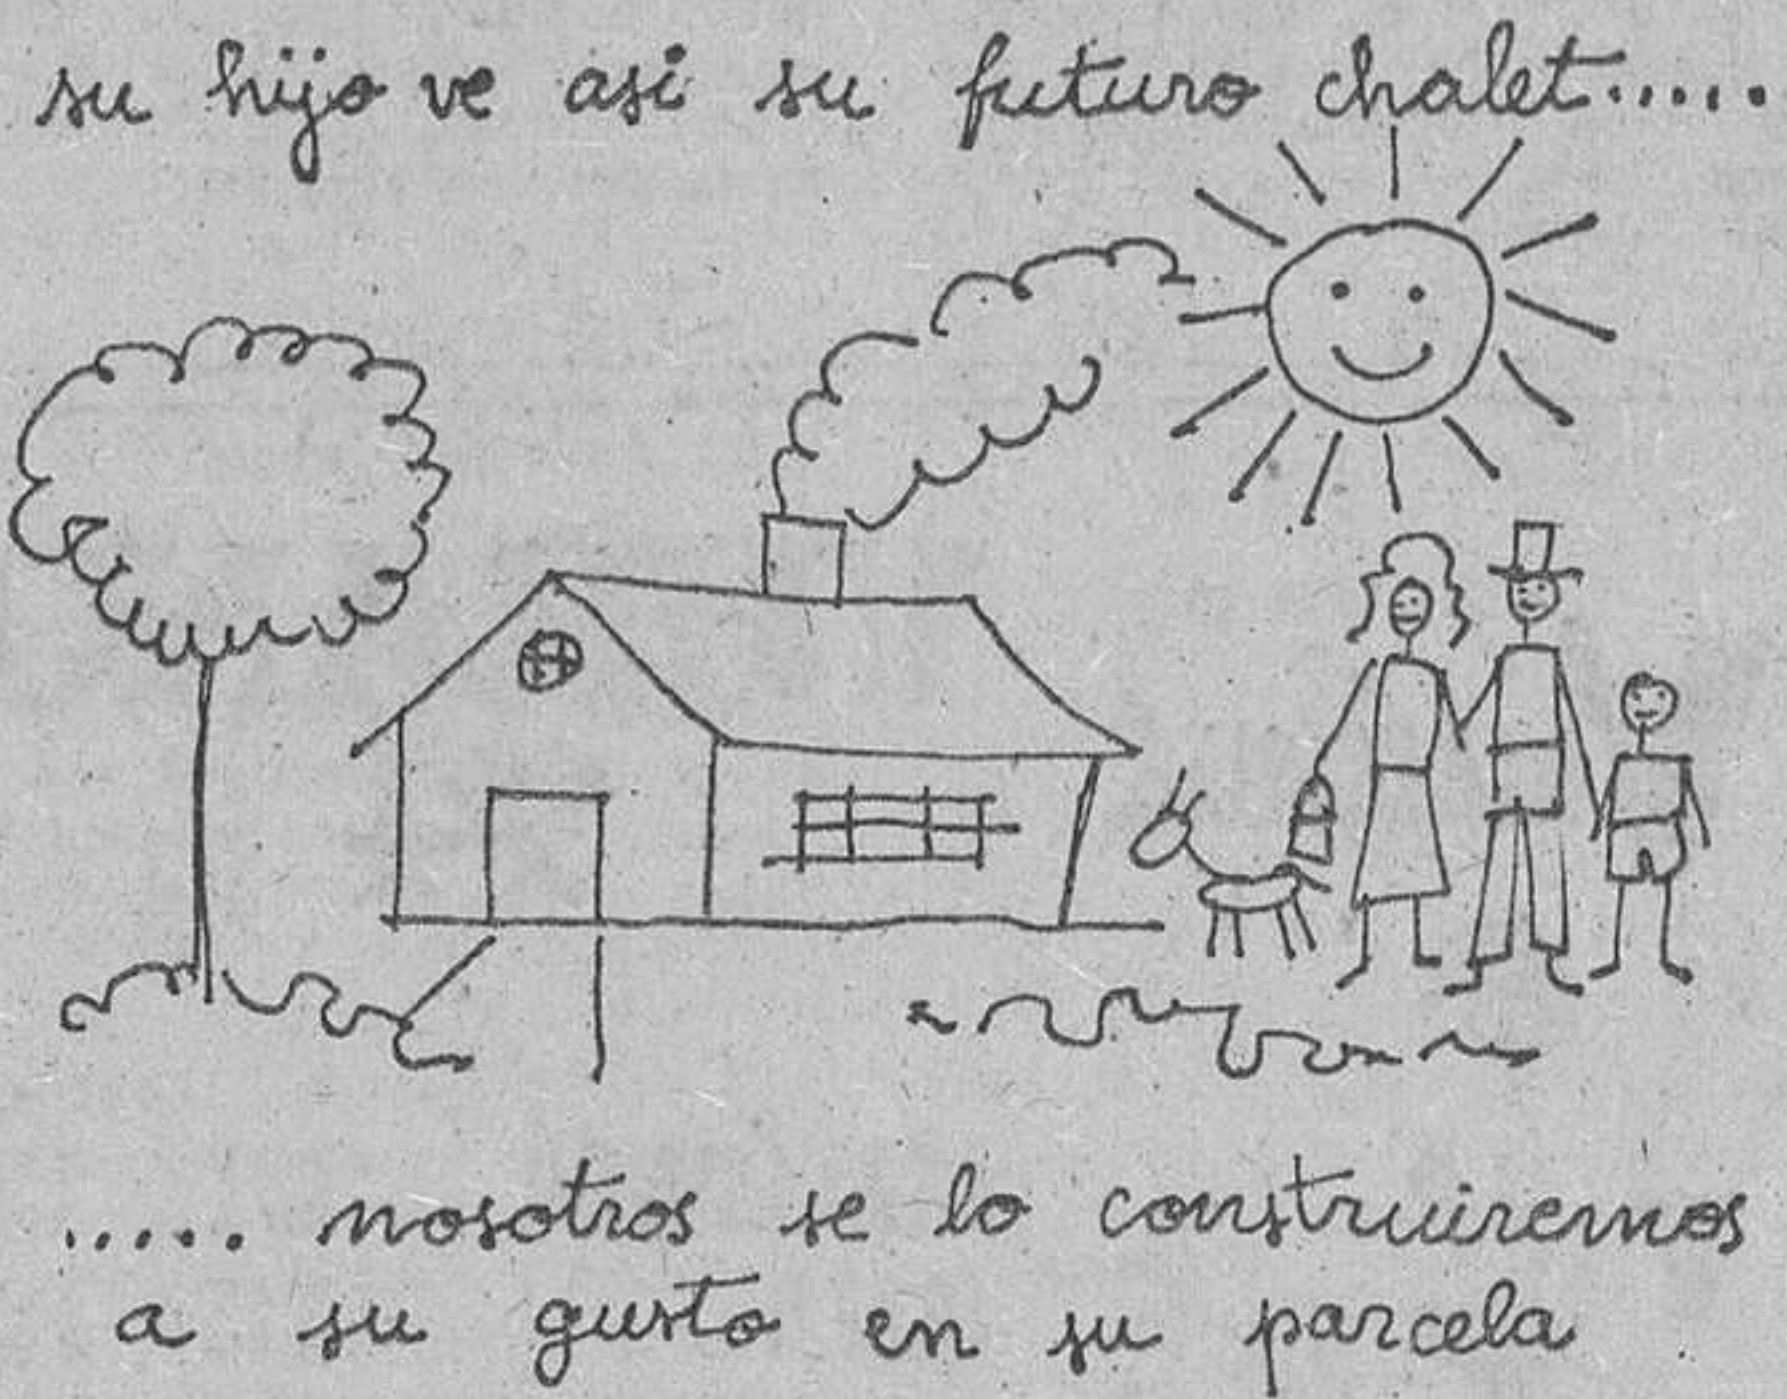 su hijo ve asi su futuro chalet.....
..... nosotros se lo construiremos
a su gusto en su parcela